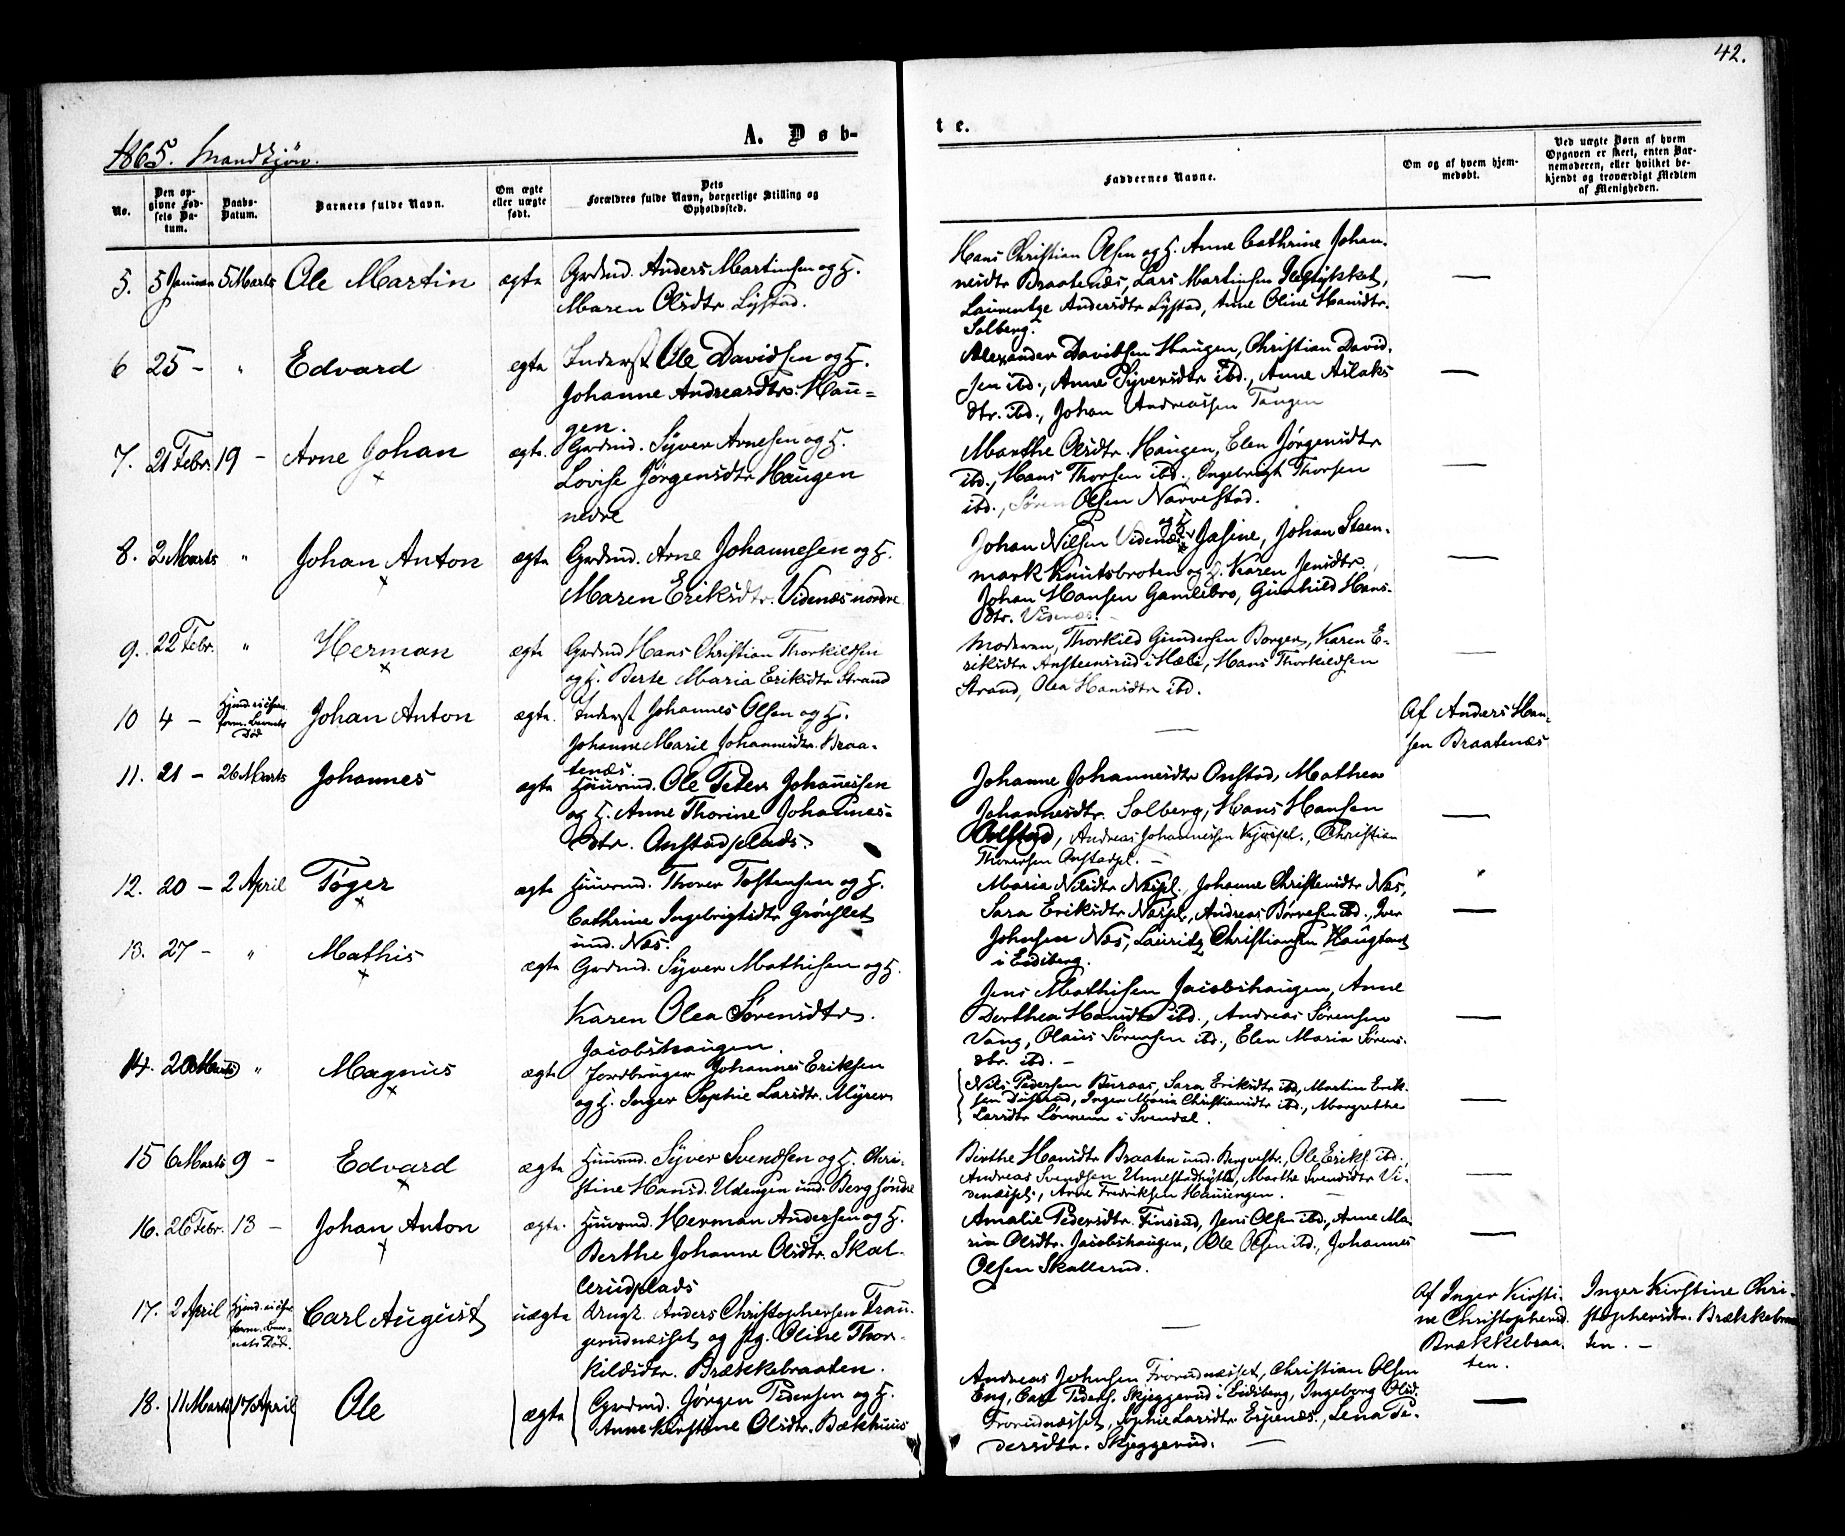 42.
1865. Mandkjøn.
A. Døb-
te.
No.
Den op-
givne Fød-
sels Da-
tum.
Daabs-
Datum.
Barnets fulde Navn.
Om ægte
eller uægte
født.
Dets
Forældres fulde Navn, borgerlige Stilling og
Opholdssted.
Faddernes Navne.
Om og af hvem hjem-
medøbt.
Ved uægte Børn af hvem
Opgaven er skeet, enten Bar-
nemoderen, eller hvilket be-
kjendt og troværdigt Medlem
af Menigheden.
5. 5 Januar 5 Marts Ole Martin ægte Grdmd. Anders Martinsen og H.
Maren Olsdtr Lystad.
Hans Christian Olsen og H. Anne Cathrine Johan-
nesdtr Braatenæs, Lars Martinsen
Laurentze Andersdtr Lystad, Anne Oline Hansdtr.
Solberg. —
6 25 – " Edvard ægte Inderst Ole Davidsen og H.
Johanne Andreasdtr. Hau-
gen.
Alexander Davidsen Haugen, Christian David-
sen ibd., Anne Syversdtr ibd., Anne Aslaks
dtr. ibd., Johan Andreassen Tangen —
7. 21 Febr. 19 – Arne Johan ægte. Grdmd. Syver Arnesen og H.
Lovise Jørgensdtr Haugen
nedre
Marthe Olsdtr. Haugen, Elen Jørgensdtr
ibd., Hans Thorsen ibd., Engebregt Thorsen
ibd., Søren Olsen Narvestad. —
8. 2 Marts " Johan Anton ægte Grdmd. Arne Johannesen og H.
Maren Eriksdtr. Videnæs nordre
Johan Nilsen Videnæs og H. Jasine, Johan Steen-
mark Knutsbroten og H. Karen Jensdtr,
Johan Hansen Gamlebro, Gunhild Hans-
dtr. Videnæs. —
9. 22 Febr. " Herman ægte Grdmd Hans Christian Thorkildsen
og H. Berte Maria Eriksdtr Strand
Moderen, Thorkild Gundersen Borger, Karen E-
riksdtr Ansteensrud i Hæli, Hans Thorkildsen
Strand, Olea Hansdtr ibd. —
10 4 – Hjmd. ei isen
form. Barnets
Død Johan Anton ægte. Inderst Johannes Olsen og H.
Johanne Marie Johannesdtr. Braa-
tenæs.
— Af Anders Han-
sen Braatenæs
11. 21 – 26 Marts Johannes ægte Huusmd. Ole Peter Johannessen
og H. Anne Thorine Johannes-
dtr. Onstadplads.
Johanne Johannesdtr Onstad, Mathea
Johannesdtr. Solberg, Hans Hansen
Onstad, Andreas Johannessen, Christian
Thoresen Onstadpl. —
12. 20 – 2 April Tøger ægte Huusmd. Thorer Tostensen og H.
Cathrine Ingebrigtsdtr Grønslet
und. Næs.
Maria Nilsdtr Næspl., Johanne Christensdtr Næs,
Sara Eriksdtr Næspl., Andreas Børresen ibd., Iver
Johnsen Næs, Lauritz Christiansen Haugtvet
i Eidsberg. —
13. 27 – " Mathis ægte Grdmd. Syver Mathisen og H.
Karen Olea Sørensdtr.
Jacobshaugen.
Jens Mathisen Jacobshaugen, Anne
Dorthea Hansdtr ibd., Andreas Sørensen
Vang, Olaus Sørensen ibd., Elen Maria Sørens-
dtr. ibd. —
14. 20 Marts " Magnus ægte Jordbruger Johannes Eriksen
og H. Inger Sophie Larsdtr. Myrer
Nils Pedersen Buraas, Sara Eriksdtr ibd, Martin Erik-
sen, Inger Maria Christiansdtr ibd., Margrethe
Larsdtr Lønnem i Svendal. —
15 6 Marts 9 – Edvard ægte Huusmd. Syver Svendsen og H. Chri-
stine Hansd. Udengen und. Berg søndre
Birthe Hansdtr Braaten und. Bergvestr., Ole Eriks. ibd.,
Andreas Svendsen Unnestadhytte, Marthe Svendsdtr Vi-
denæspl., Arne Fredriksen Hauengen. —
16. 26 Febr. 13 – Johan Anton ægte. Huusmd. Herman Andersen og H.
Berthe Johanne Olsdtr. Skal-
lerudplads
Amalie Pedersdtr. Finsrud, Jens Olsen ibd., Anne Ma-
ria Olsdtr. Jacobshaugen, Ole Olsen ibd., Johannes
Olsen Skallerud. —
17. 2 April Hjmd. ei isen
form. Bar-
nets Død. Carl August uægte Ungk. Anders Christophersen Frau-
gerudnæsset og Pig. Oline Thor-
kildsdtr. Brækkebraaten.
— Af Inger Kirsti-
ne Christophersd.
Brækkebraa-
ten.
Inger Kirstine Chri-
stophersdtr. Brækkebraa-
ten. –
18. 11 Marts 17 April Ole ægte Grdmd. Jørgen Pedersen og H.
Anne Kirstine Olsdtr. Bækhuus
Andreas Johnsen Frorudnæsset, Christian Olsen
Eng, Carl Peders. Skjeggerud i Eidsberg, Ingeborg Olsd.
Frorudnæsset, Sophie Larsdtr Espenæs., Lena Pe-
dersdtr. Skjeggerud. —